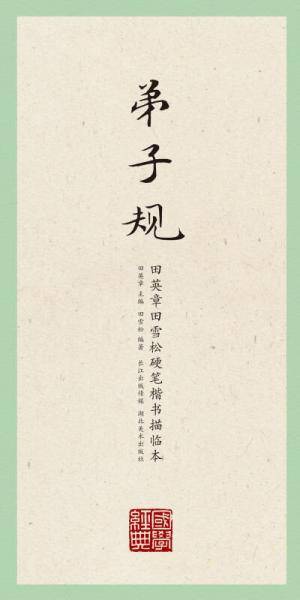 弟子规
田英章田雪松硬笔楷书描临本
田英章 主编 田雪松 编著 长江出版传媒 湖北美术出版社
國學經典